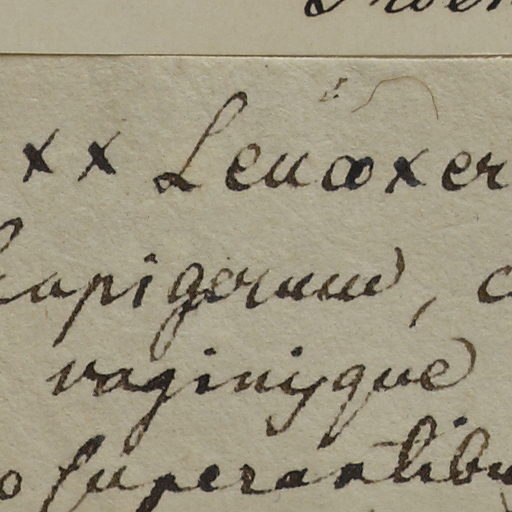 x x Leucoxer
capigerum, c
vaginisque
superantibu